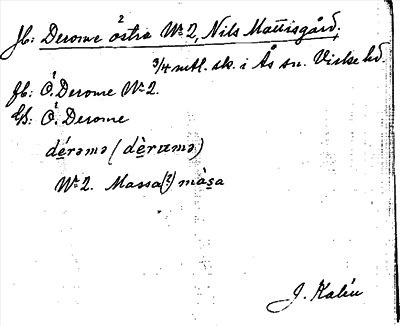 Jb: Derome östra No 2, Nils Mattisgård.
3/4 mtl. sk. i Ås sn. Viske hd.
fb: Ö. Derome No 2.
Gs: Ö. Derome
dérəmə (dèrɯmə)
No 2. Massa(?) màsa
J. Kalén